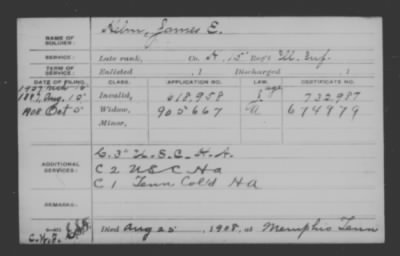 NAME OF SOLDIER: Kilm, James E.
SERVICE: Late rank, Co. A, 15 Reg't Ill. Inf.
TERM OF SERVICE: Enlisted , 1 Discharged , 1
DATE OF FILING. CLASS. APPLICATION NO. LAW. CERTIFICATE NO.
1907
1887, Aug. 15 Invalid, 618,958 age 732,987
1908 Oct 5 Widow, 905667 674979
Minor,
ADDITIONAL SERVICES:
C. 3" U.S.C.H.A.
C 2 USC Ha
C 1 Tenn Col'd HA
REMARKS:
Died Aug 25, 1908, at Memphis Tenn